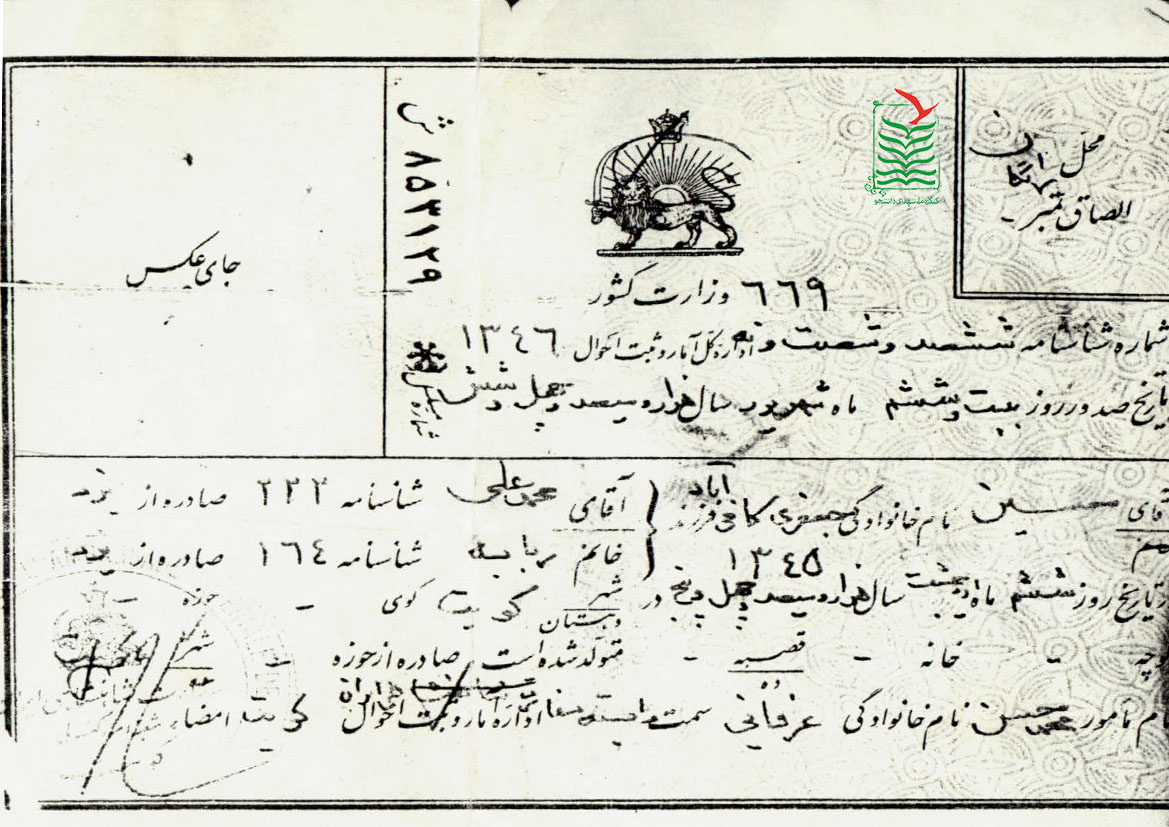 محل
الصاق تمبر
رایگان
کنگره ملی شهدای دانشجو
ش ۸۵۳۱۲۹
جای عکس
۶۶۹ وزارت کشور
شماره شناسنامه ششصد و شصت و نه اداره کل آمار و ثبت احوال ۱۳۴۶
تاریخ صدور روز بیست و ششم ماه شهریور سال هزار و سیصد و چهل و شش
شماره مسلسل
آقای حسین نام خانوادگی جعفری کافی آباد فرزند آقای محمد علی شناسنامه ۲۲۲ صادره از یزد
خانم ربابه شناسنامه ۱۶۴ صادره از یزد
۱۳۴۵
تاریخ روز ششم ماه اردیبهشت سال هزار و سیصد و چهل و پنج در شهر کویت کوی - حوزه -
دبستان
خانه - قصبه - متولد شده است صادره از حوزه - شهر
نام مامور محمد حسن نام خانوادگی عرفانی سمت اداره آمار و ثبت احوال کویت امضاء